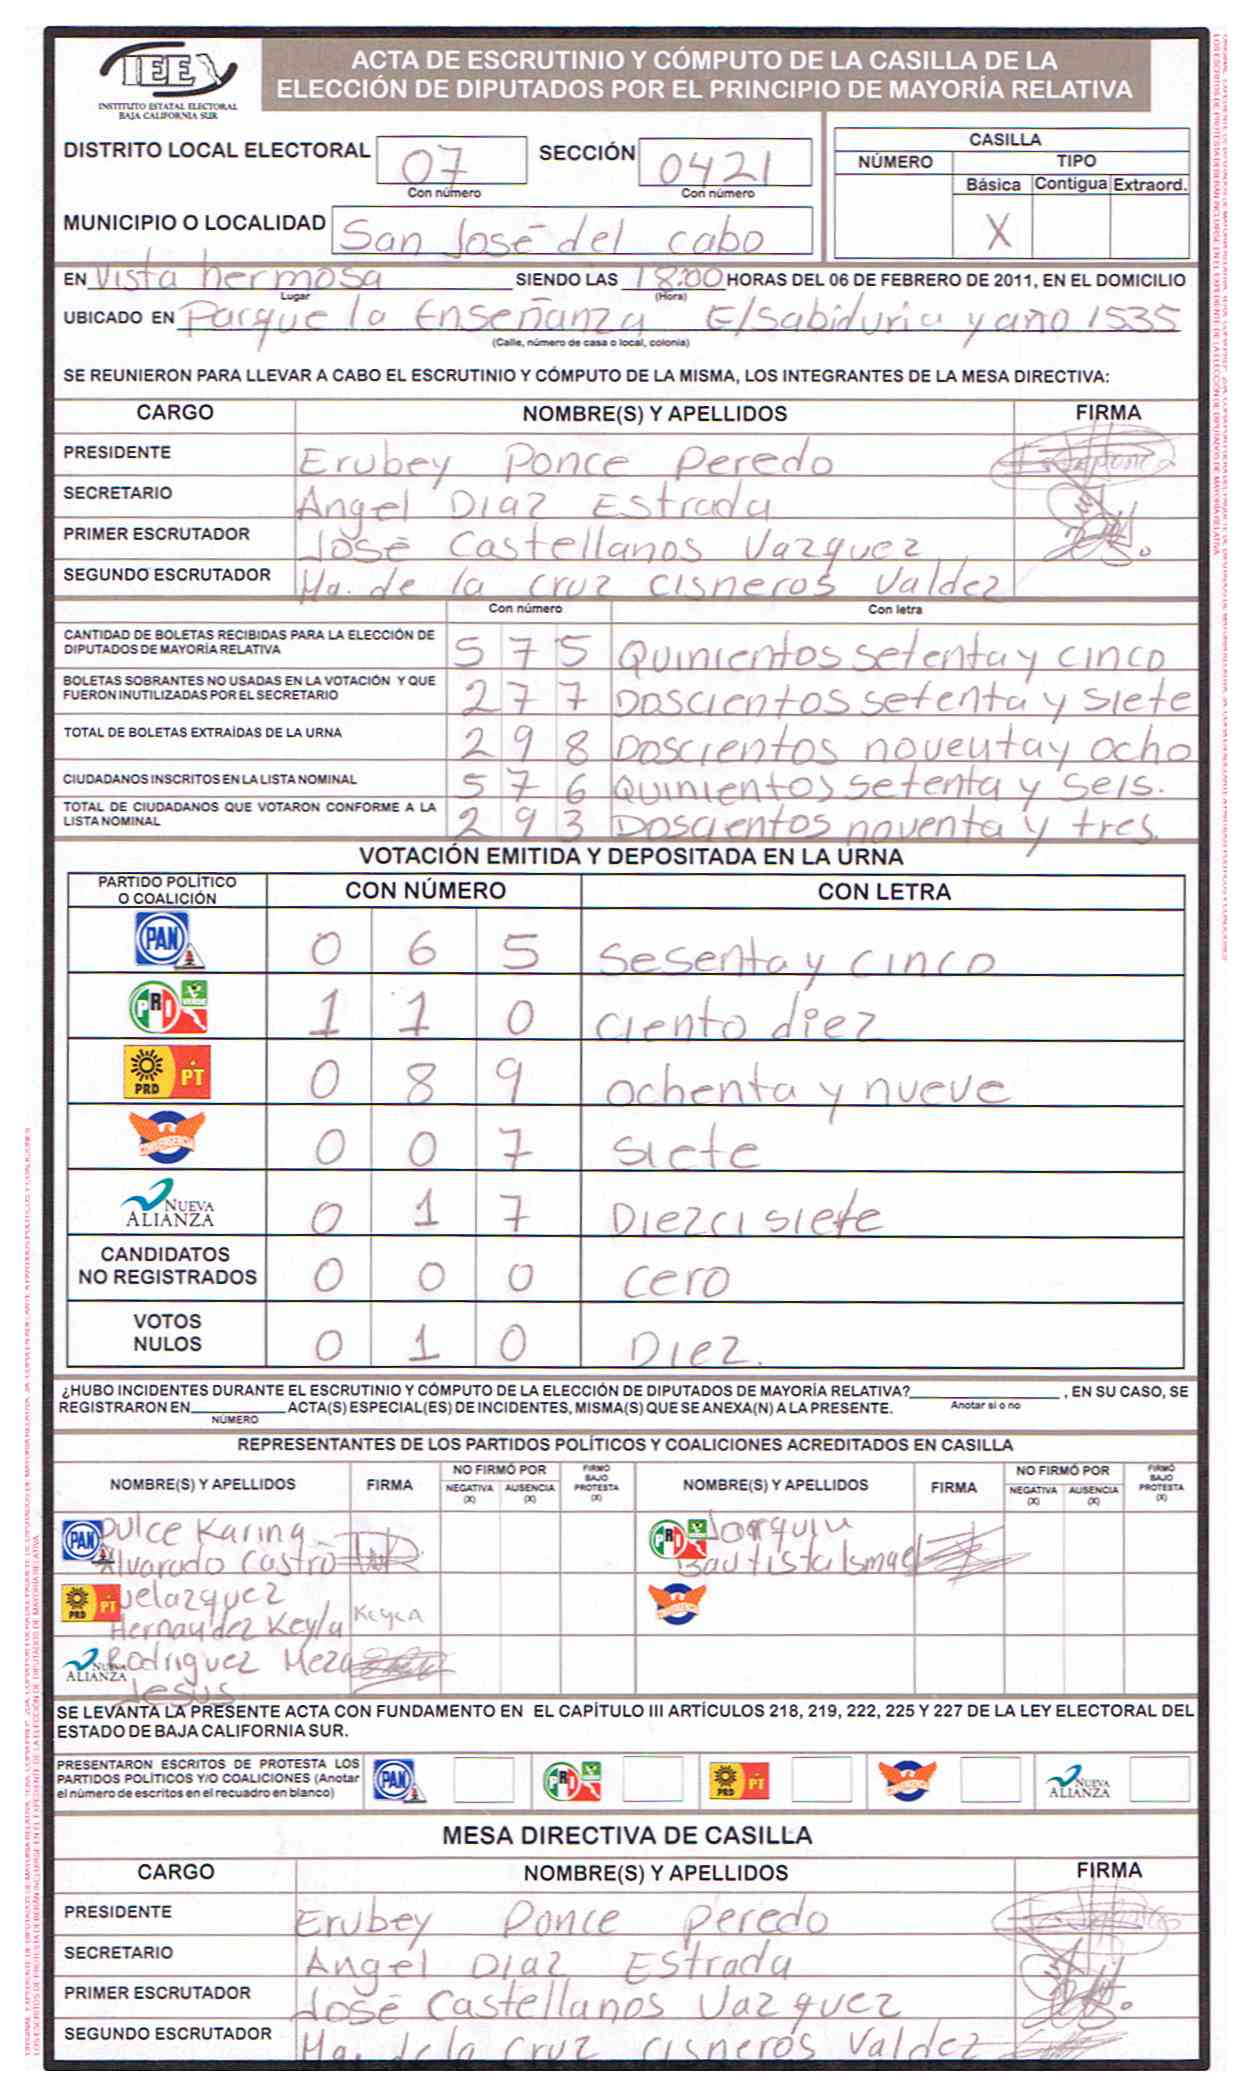 IEE
INSTITUTO ESTATAL ELECTORAL
BAJA CALIFORNIA SUR
ACTA DE ESCRUTINIO Y CÓMPUTO DE LA CASILLA DE LA
ELECCIÓN DE DIPUTADOS POR EL PRINCIPIO DE MAYORÍA RELATIVA
DISTRITO LOCAL ELECTORAL 07 SECCIÓN 0421
Con número Con número
MUNICIPIO O LOCALIDAD San José del cabo
CASILLA
NÚMERO TIPO
Básica Contigua Extraord.
X
EN Vista hermosa SIENDO LAS 18:00 HORAS DEL 06 DE FEBRERO DE 2011, EN EL DOMICILIO
Lugar (Hora)
UBICADO EN Parque la Enseñanza E/Sabiduria y año 1535
(Calle, número de casa o local, colonia)
SE REUNIERON PARA LLEVAR A CABO EL ESCRUTINIO Y CÓMPUTO DE LA MISMA, LOS INTEGRANTES DE LA MESA DIRECTIVA:
CARGO NOMBRE(S) Y APELLIDOS FIRMA
PRESIDENTE Erubey Ponce Peredo
SECRETARIO Angel Diaz Estrada
PRIMER ESCRUTADOR José Castellanos Vazquez
SEGUNDO ESCRUTADOR Ma. de la cruz cisneros Valdez
Con número Con letra
CANTIDAD DE BOLETAS RECIBIDAS PARA LA ELECCIÓN DE
DIPUTADOS DE MAYORÍA RELATIVA 5 7 5 Quinientos setenta y cinco
BOLETAS SOBRANTES NO USADAS EN LA VOTACIÓN Y QUE
FUERON INUTILIZADAS POR EL SECRETARIO 2 7 7 Doscientos setenta y siete
TOTAL DE BOLETAS EXTRAÍDAS DE LA URNA 2 9 8 Doscientos noventa y ocho
CIUDADANOS INSCRITOS EN LA LISTA NOMINAL 5 7 6 Quinientos setenta y seis.
TOTAL DE CIUDADANOS QUE VOTARON CONFORME A LA
LISTA NOMINAL 2 9 3 Doscientos noventa y tres.
VOTACIÓN EMITIDA Y DEPOSITADA EN LA URNA
PARTIDO POLÍTICO
O COALICIÓN CON NÚMERO CON LETRA
PAN 0 6 5 Sesenta y cinco
PRI VERDE 1 1 0 ciento diez
PRD PT 0 8 9 ochenta y nueve
CONVERGENCIA 0 0 7 siete
NUEVA
ALIANZA 0 1 7 Diezcisiete
CANDIDATOS
NO REGISTRADOS 0 0 0 cero
VOTOS
NULOS 0 1 0 Diez.
¿HUBO INCIDENTES DURANTE EL ESCRUTINIO Y CÓMPUTO DE LA ELECCIÓN DE DIPUTADOS DE MAYORÍA RELATIVA? , EN SU CASO, SE
Anotar si o no
REGISTRARON EN ACTA(S) ESPECIAL(ES) DE INCIDENTES, MISMA(S) QUE SE ANEXA(N) A LA PRESENTE.
NÚMERO
REPRESENTANTES DE LOS PARTIDOS POLÍTICOS Y COALICIONES ACREDITADOS EN CASILLA
NOMBRE(S) Y APELLIDOS FIRMA NO FIRMÓ POR NEGATIVA (X) AUSENCIA (X) FIRMÓ BAJO PROTESTA (X) NOMBRE(S) Y APELLIDOS FIRMA NO FIRMÓ POR NEGATIVA (X) AUSENCIA (X) FIRMÓ BAJO PROTESTA (X)
PAN Dulce Karina PRI VERDE Joaquin
Alvarado Castro Bautista Ismael
PRD PT Velazquez
Hernandez Keyla Keyla
NUEVA ALIANZA Rodriguez Meza
Jesus
SE LEVANTA LA PRESENTE ACTA CON FUNDAMENTO EN EL CAPÍTULO III ARTÍCULOS 218, 219, 222, 225 Y 227 DE LA LEY ELECTORAL DEL
ESTADO DE BAJA CALIFORNIA SUR.
PRESENTARON ESCRITOS DE PROTESTA LOS
PARTIDOS POLÍTICOS Y/O COALICIONES (Anotar
el número de escritos en el recuadro en blanco)
PAN PRI VERDE PRD PT CONVERGENCIA NUEVA ALIANZA
MESA DIRECTIVA DE CASILLA
CARGO NOMBRE(S) Y APELLIDOS FIRMA
PRESIDENTE Erubey Ponce Peredo
SECRETARIO Angel Diaz Estrada
PRIMER ESCRUTADOR José Castellanos Vazquez
SEGUNDO ESCRUTADOR Ma. de la cruz cisneros Valdez